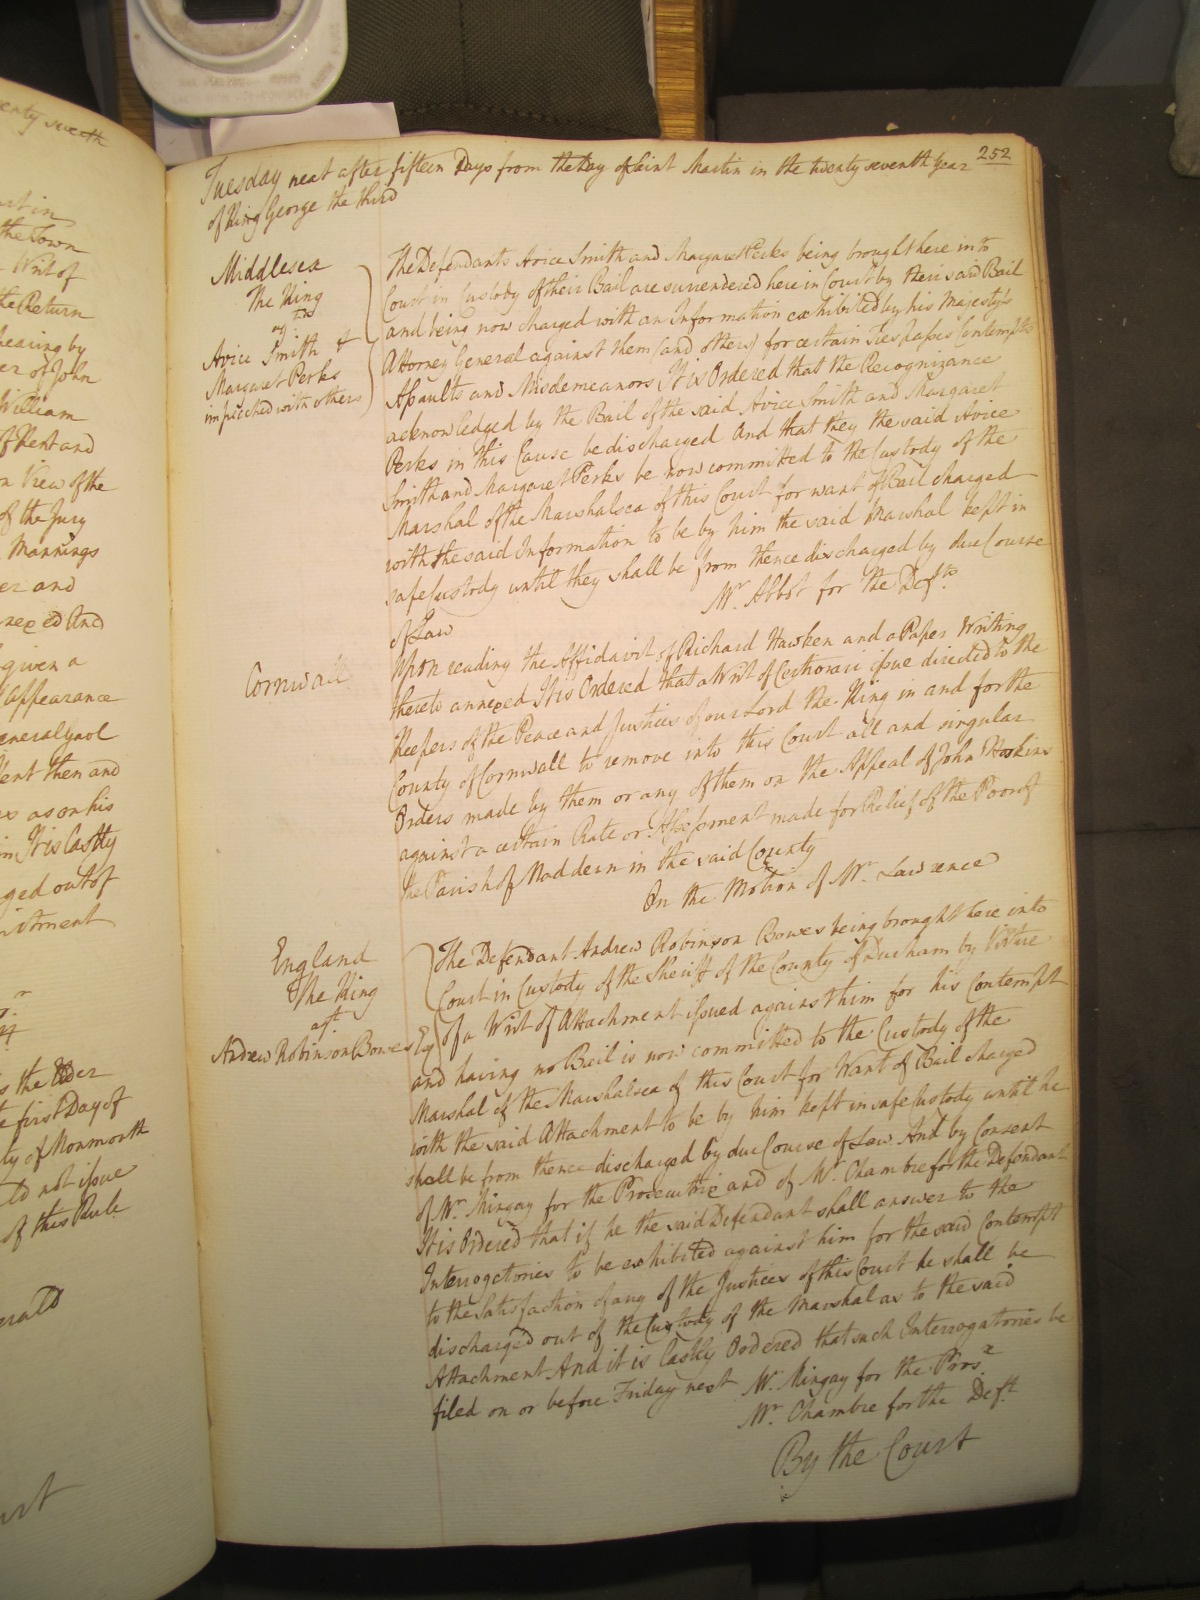 enty seventh
urt in
the Town
Writ of
the Return
hearing by
er of John
William
of Kent and
n View of the
of the Jury
Mannings
er and
nexed And
given a
appearance
eneral Gaol
ent them and
as on his
It is lastly
ged out of
itment
s the Elder
e first Day of
ty of Monmouth
ld not issue
of this Rule
252
Tuesday next after fifteen Days from the Day of Saint Martin in the twenty seventh Year
of King George the third
Middlesex
The King
agt
Avice Smith &
Margaret Perks
impleaded with others
The Defendants Avice Smith and Margaret Perks being brought here into
Court in Custody of their Bail are surrendered here in Court by their said Bail
and being now charged with an Information exhibited by his Majesty's
Attorney General against them (and others) for certain Trespasses Contempts
Assaults and Misdemeanors It is Ordered that the Recognizance
acknowledged by the Bail of the said Avice Smith and Margaret
Perks in this Cause be discharged And that they the said Avice
Smith and Margaret Perks be now committed to the Custody of the
Marshal of the Marshalsea of this Court for want of Bail charged
with the said Information to be by him the said Marshal kept in
safe Custody until they shall be from thence discharged by due Course
of Law
Mr. Abbot for the Defts.
Cornwall
Upon reading the Affidavit of Richard Hawken and a Paper Writing
thereto annexed It is Ordered that a Writ of Certiorari issue directed to the
Keepers of the Peace and Justices of our Lord the King in and for the
County of Cornwall to remove into this Court all and singular
Orders made by them or any of them on the Appeal of John Hoskins
against a certain Rate or Assessment made for Relief of the Poor of
the Parish of Maddern in the said County
On the Motion of Mr. Lawrence
England
The King
agt.
Andrew Robinson Bowes Esq
The Defendant Andrew Robinson Bowes being brought here into
Court in Custody of the Sheriff of the County of Durham by Virtue
of a Writ of Attachment issued against him for his Contempt
and having no Bail is now committed to the Custody of the
Marshal of the Marshalsea of this Court for Want of Bail charged
with the said Attachment to be by him kept in safe Custody until he
shall be from thence discharged by due Course of Law And by Consent
of Mr. Mingay for the Prosecutrix and of Mr. Chambre for the Defendant
It is Ordered that if he the said Defendant shall answer to the
Interrogatories to be exhibited against him for the said Contempt
to the satisfaction of any of the Justices of this Court he shall be
discharged out of the Custody of the Marshal as to the said
Attachment And it is lastly Ordered that such Interrogatories be
filed on or before Friday next
Mr. Mingay for the Prosx.
Mr. Chambre for the Deft.
By the Court